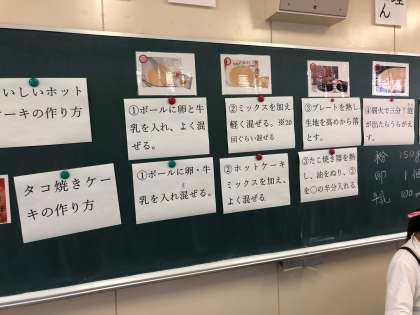 ん
いしいホット
ケーキの作り方
①ボールに卵と牛
乳を入れ、よく混
ぜる。
②ミックスを加え、
軽く混ぜる。※20
回ぐらい混ぜる
③プレートを熱し
生地を高めから落
とす。
④弱火で三分
が出たらうらがえ
す。
タコ焼きケー
キの作り方
①ボールに卵・牛
乳を入れ混ぜる。
②ホットケーキ
ミックスを加え、
よく混ぜる
③たこ焼き器を熱
し、油をぬり、②
を○の半分入れる
粉 150
卵 1
牛乳 100